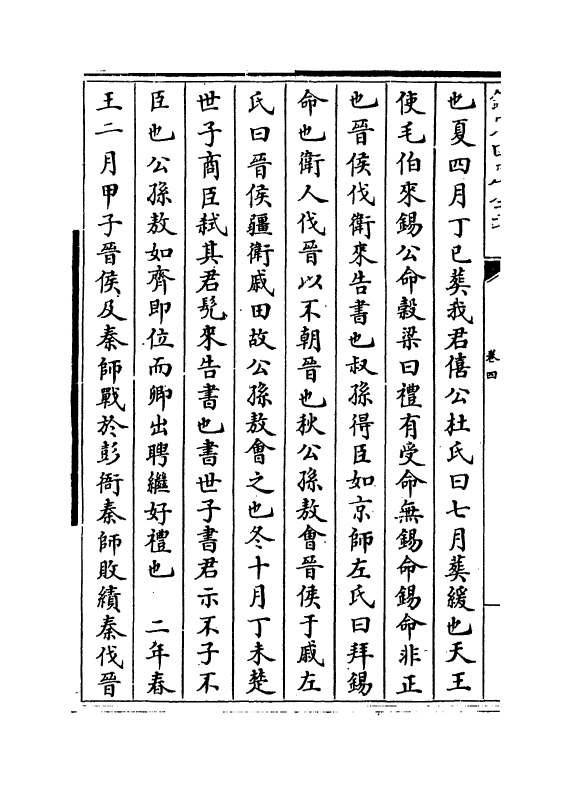 也夏四月丁巳葬我君僖公杜氏曰七月葬緩也天王
使毛伯來錫公命穀梁曰禮有受命無錫命錫命非正
也晉侯伐衛來告書也叔孫得臣如京師左氏曰拜錫
命也衛人伐晉以不朝晉也秋公孫敖會晉侯于戚左
氏曰晉侯疆衛戚田故公孫敖會之也冬十月丁未楚
世子商臣弑其君髡來告書也書世子書君示不子不
臣也公孫敖如齊即位而卿出聘繼好禮也　二年春
王二月甲子晉侯及秦師戰於彭衙秦師敗績秦伐晉
卷四